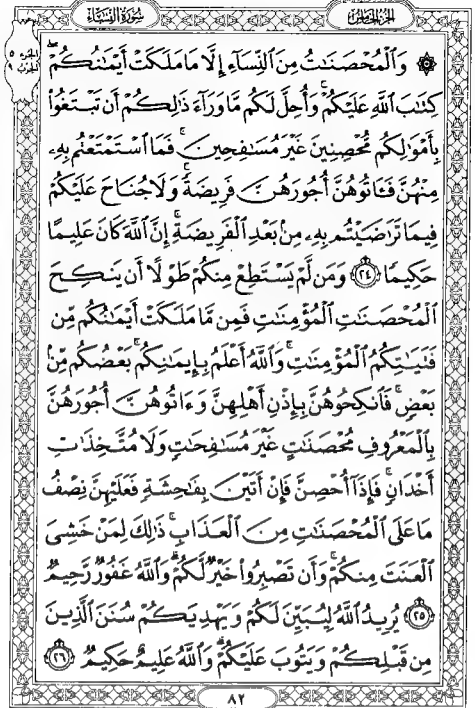 الجزء الخامس
سورة النساء
الجزء ٥
الحزب ٩
۞ وَٱلْمُحْصَنَٰتُ مِنَ ٱلنِّسَآءِ إِلَّا مَا مَلَكَتْ أَيْمَٰنُكُمْ ۖ
كِتَٰبَ ٱللَّهِ عَلَيْكُمْ ۚ وَأُحِلَّ لَكُم مَّا وَرَآءَ ذَٰلِكُمْ أَن تَبْتَغُوا۟
بِأَمْوَٰلِكُم مُّحْصِنِينَ غَيْرَ مُسَٰفِحِينَ ۚ فَمَا ٱسْتَمْتَعْتُم بِهِۦ
مِنْهُنَّ فَـَٔاتُوهُنَّ أُجُورَهُنَّ فَرِيضَةً ۚ وَلَا جُنَاحَ عَلَيْكُمْ
فِيمَا تَرَٰضَيْتُم بِهِۦ مِنۢ بَعْدِ ٱلْفَرِيضَةِ ۚ إِنَّ ٱللَّهَ كَانَ عَلِيمًا
حَكِيمًا ﴿٢٤﴾ وَمَن لَّمْ يَسْتَطِعْ مِنكُمْ طَوْلًا أَن يَنكِحَ
ٱلْمُحْصَنَٰتِ ٱلْمُؤْمِنَٰتِ فَمِن مَّا مَلَكَتْ أَيْمَٰنُكُم مِّن
فَتَيَٰتِكُمُ ٱلْمُؤْمِنَٰتِ ۚ وَٱللَّهُ أَعْلَمُ بِإِيمَٰنِكُم ۚ بَعْضُكُم مِّنۢ
بَعْضٍ ۚ فَٱنكِحُوهُنَّ بِإِذْنِ أَهْلِهِنَّ وَءَاتُوهُنَّ أُجُورَهُنَّ
بِٱلْمَعْرُوفِ مُحْصَنَٰتٍ غَيْرَ مُسَٰفِحَٰتٍ وَلَا مُتَّخِذَٰتِ
أَخْدَانٍ ۚ فَإِذَآ أُحْصِنَّ فَإِنْ أَتَيْنَ بِفَٰحِشَةٍ فَعَلَيْهِنَّ نِصْفُ
مَا عَلَى ٱلْمُحْصَنَٰتِ مِنَ ٱلْعَذَابِ ۚ ذَٰلِكَ لِمَنْ خَشِىَ
ٱلْعَنَتَ مِنكُمْ ۚ وَأَن تَصْبِرُوا۟ خَيْرٌ لَّكُمْ ۗ وَٱللَّهُ غَفُورٌ رَّحِيمٌ
﴿٢٥﴾ يُرِيدُ ٱللَّهُ لِيُبَيِّنَ لَكُمْ وَيَهْدِيَكُمْ سُنَنَ ٱلَّذِينَ
مِن قَبْلِكُمْ وَيَتُوبَ عَلَيْكُمْ ۗ وَٱللَّهُ عَلِيمٌ حَكِيمٌ ﴿٢٦﴾
٨٢